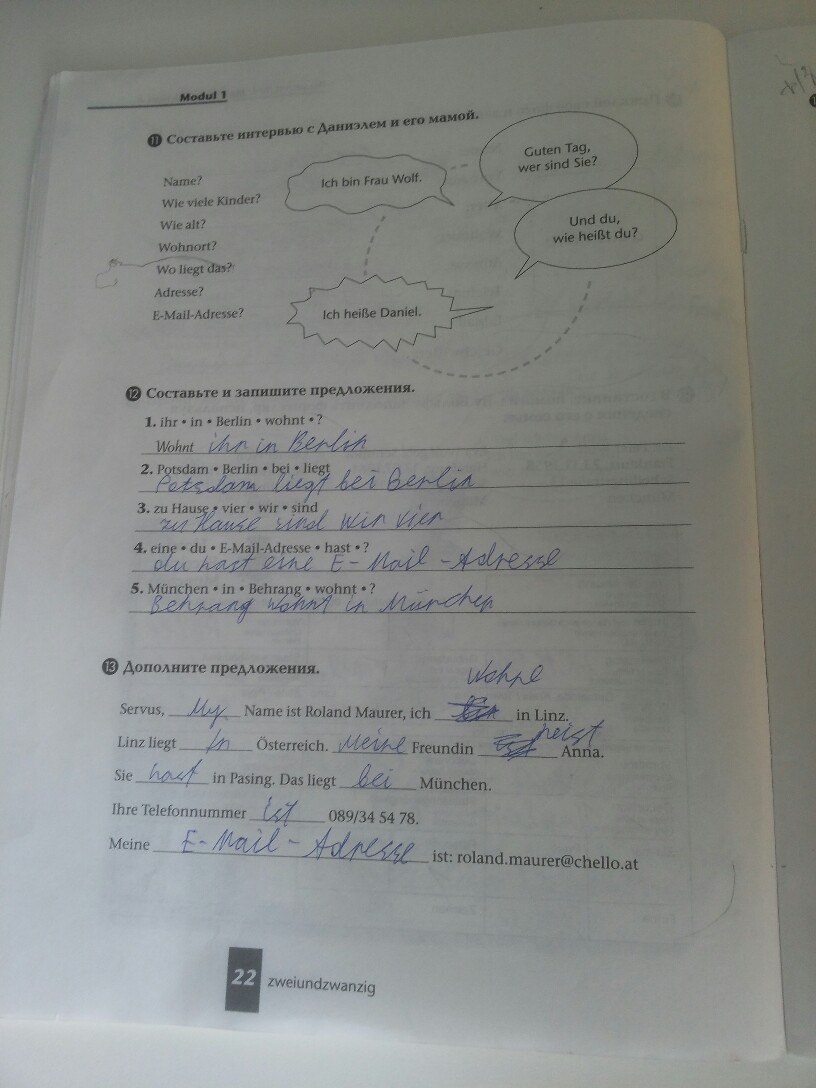 Modul 1
11 Составьте интервью с Даниэлем и его мамой.
Guten Tag,
wer sind Sie?
Ich bin Frau Wolf.
Name?
Wie viele Kinder?
Wie alt?
Wohnort?
Wo liegt das?
Adresse?
E-Mail-Adresse?
Und du,
wie heißt du?
Ich heiße Daniel.
12 Составьте и запишите предложения.
1. ihr • in • Berlin • wohnt • ?
Wohnt ihr in Berlin
2. Potsdam • Berlin • bei • liegt
Potsdam liegt bei Berlin
3. zu Hause • vier • wir • sind
zu Hause sind wir vier
4. eine • du • E-Mail-Adresse • hast • ?
du hast eine E-Mail-Adresse
5. München • in • Behrang • wohnt • ?
Behrang wohnt in München
13 Дополните предложения.
wohne
Servus, My Name ist Roland Maurer, ich in Linz.
heist
Linz liegt In Österreich. Meine Freundin Anna.
Sie hast in Pasing. Das liegt bei München.
Ihre Telefonnummer ist 089/34 54 78.
Meine E-Mail-Adresse ist: roland.maurer@chello.at
22 zweiundzwanzig